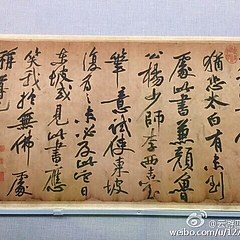 猶恐太白有未到
處此書兼顏魯
公楊少師李西臺
筆意試使東坡
復為之未必及此它日
東坡或見此書應
笑我於無佛處
稱尊
weibo.com/u/12